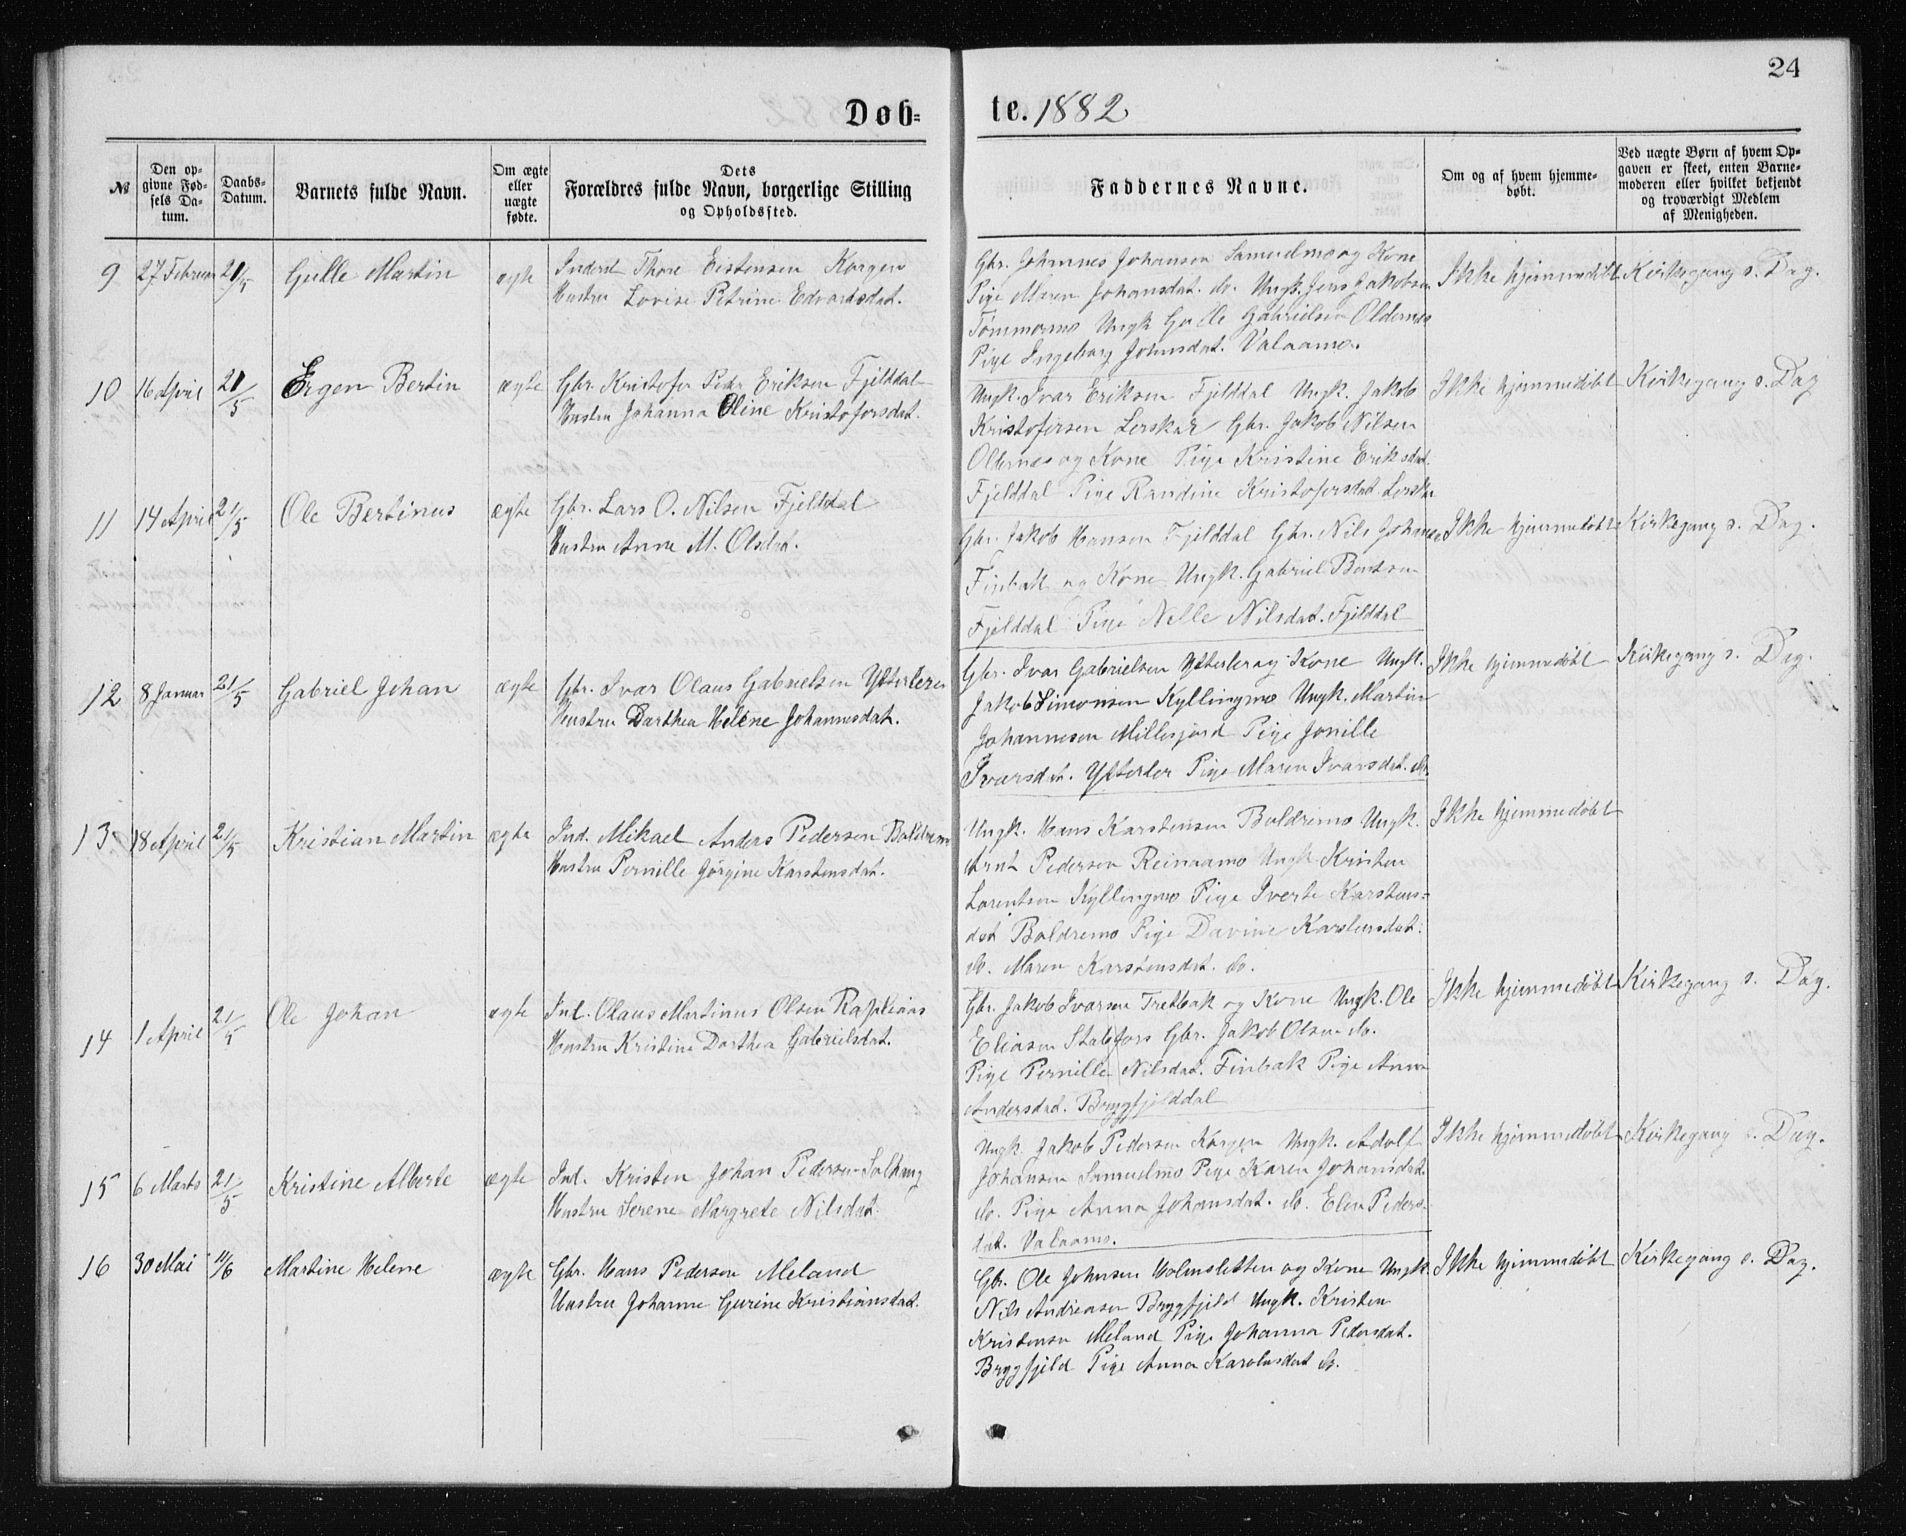 24
Døb-
te. 1882
№
Den op-
givne Fød-
sels Da-
tum.
Daabs-
Datum.
Barnets fulde Navn.
Om ægte
eller
uægte
fødte.
Dets
Forældres fulde Navn, borgerlige Stilling
og Opholdssted.
Faddernes Navne.
Om og af hvem hjemme-
døbt.
Ved uægte Børn af hvem Op-
gaven er skeet, enten Barne-
moderen eller hvilket bekjendt
og troværdigt Medlem
af Menigheden.
9
27 Februar
21/5
Gulle Martin
ægte
Inderst Thore Eistensen Korgen
Hustru Lovise Petrine Edvardsdat.
Gbr. Johannes Johansen Samuelmo og Kone
Pige Maren Johansdat. do. Ungk. Jens Jakobsen
Tømmermo Ungk Gulle Gabrielsen Oldernes
Pige Ingeborg Johnsdat. Valaamo.
Ikke hjemmedöbt
Kirkegang s. Dag.
10
16 April
21/5
Ergen Bertin
ægte
Gbr. Kristofer Peder Eriksen Fjelddal
Hustru Johanna Oline Kristofersdat.
Ungk. Ivar Eriksen Fjelddal Ungk. Jakob
Kristofersen Lerskar Gbr. Jakob Nilsen
Oldernes og Kone Pige Kristine Eriksdat.
Fjelddal Pige Randine Kristofersdat Lerskar
Ikke hjemmedöbt
Kirkegang s. Dag
11
14 April
21/5
Ole Bertinus
ægte
Gbr. Lars O. Nilsen Fjelddal
Hustru Anne M. Olsdat.
Gbr. Jakob Hansen Fjelddal Gbr. Nils Johansen
Finbak og Kone Ungk. Gabriel Bentsen
Fjelddal Pige Nelle Nilsdat. Fjelddal
Ikke hjemmedöbt
Kirkegang s. Dag.
12
8 Januar
21/5
Gabriel Johan
ægte
Gbr. Ivar Olaus Gabrielsen Ytterleren
Hustru Darthea Helene Johannesdat.
Gbr. Ivar Gabrielsen Ytterler og Kone Ungk.
Jakob Simonsen Kyllingmo Ungk. Martin
Johannesen Millesjord Pige Jonille
Ivarsdat. Ytterler Pige Maren Ivarsdat. do.
Ikke hjemmedöbt
Kirkegang s. Dag.
13
18 April
21/5
Kristian Martin
ægte
Ind. Mikael Anders Pedersen Boldremo
Hustru Pernille Jørgine Karstensdat.
Ungk. Hans Karstensen Boldremo Ungk.
Arnt Pedersen Reinaamo Ungk Kristen
Lorentsen Kyllingmo Pige Iverte Karstens-
dat Boldremo Pige Davine Karstensdat.
do. Maren Karstensdat. do.
Ikke hjemmedöbt
14
1 April
21/5
Ole Johan
ægte
Ind. Olaus Martinus Olsen Rapliaas
Hustru Kristine Dorthea Gabrielsdat.
Gbr. Jakob Ivarsen Tretbak og Kone Ungk. Ole
Eliasen Stabfors Gbr. Jakob Olsen do.
Pige Pernille Nilsdat. Finbak Pige Anne
Andersdat. Bryggfjelddal
Ikke hjemmedöbt
Kirkegang s. Dag.
15
6 Marts
21/5
Kristine Alberte
ægte
Ind. Kristen Johan Pedersen
Hustru Serene Margrete Nilsdat.
Ungk. Jakob Pedersen Korgen Ungk. Adolf
Johansen Samuelmo Pige Karen Johansdat.
do. Pige Anna Johansdat. do. Elen Peders-
dat. Valaamo.
Ikke hjemmedöbt
Kirkegang s. Dag.
16
30 Mai
11/6
Martine Helene
ægte
Gbr. Hans Pedersen Meland
Hustru Johanne Gurine Kristiansdat.
Gbr. Ole Johnsen Holmsletten og Kone Ungk
Nils Andreasen Bryggfjeld Ungk. Kristen
Kristensen Meland Pige Johanna Pedersdat.
Bryggfjeld Pige Anna Karolusdat do.
Ikke hjemmedöbt
Kirkegang s. Dag.